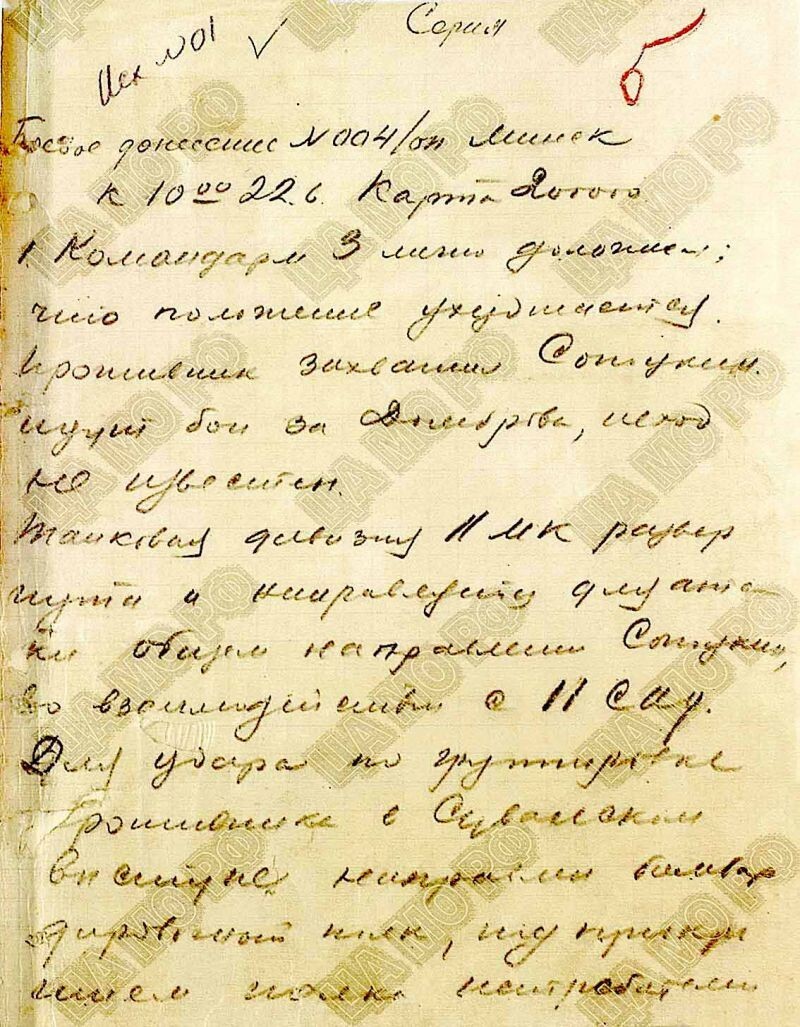 Исх №01
Серия
б
Боевое донесение №004/оп Минск
к 10 00 22.6 Карта
1 Командарм 3 лично доложил;
что положение ухудшается.
Противник захватил Сопуцкин.
идут бои за Домброва, исход
не известен.
Танковая дивизия 11 МК развер
нута и направляется для ата
ки общем направлении
во взаимодействии с 11 САД.
Для удара по группировке
Противника в Сувалском
выступе, направлен бомбар
дировочный полк, под прикры
тием полка истребителей
ЦА МО РФ